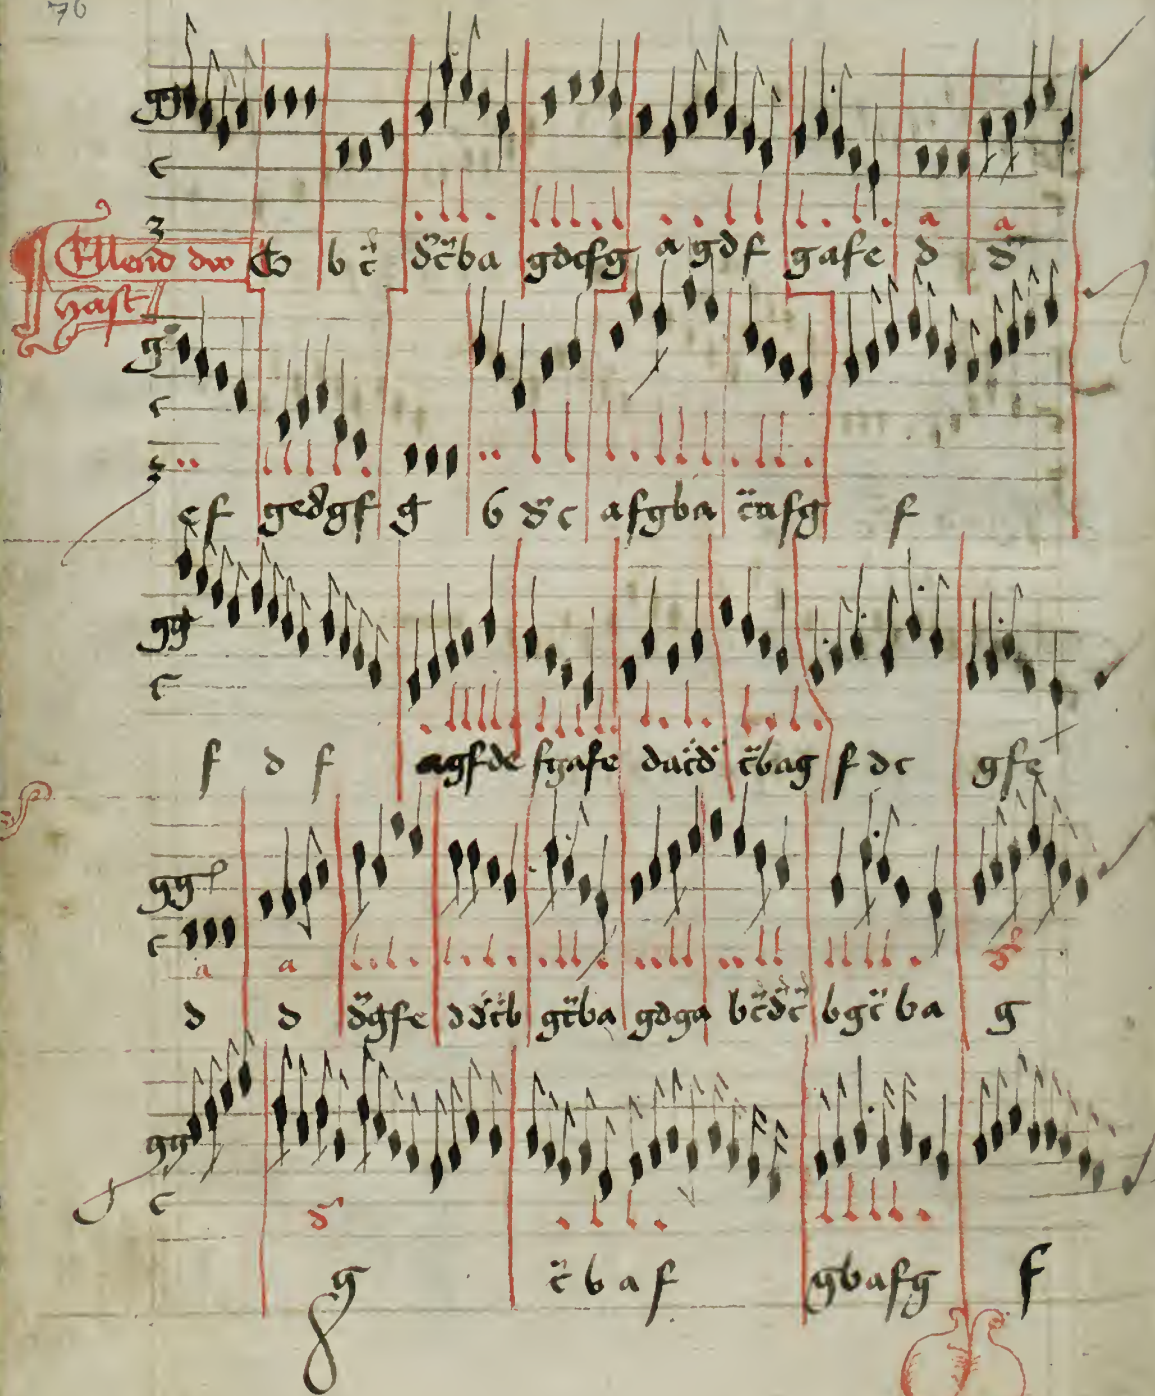 76
gg
c
Ellend du
hast
G b c̈ d̈c̈ba gdefg agdf gafe d d̈
a a
g
c
ef gedgf g b d̈c afgba c̈afg f
gg
c
f d f agfde fgafe dac̈d̈ c̈bag fdc gfe
gg
c
a a
d d d̈gfe dd̈c̈b gc̈ba gdga bc̈d̈c̈ bgc̈ba g
gg
c
g c̈baf gbafg f